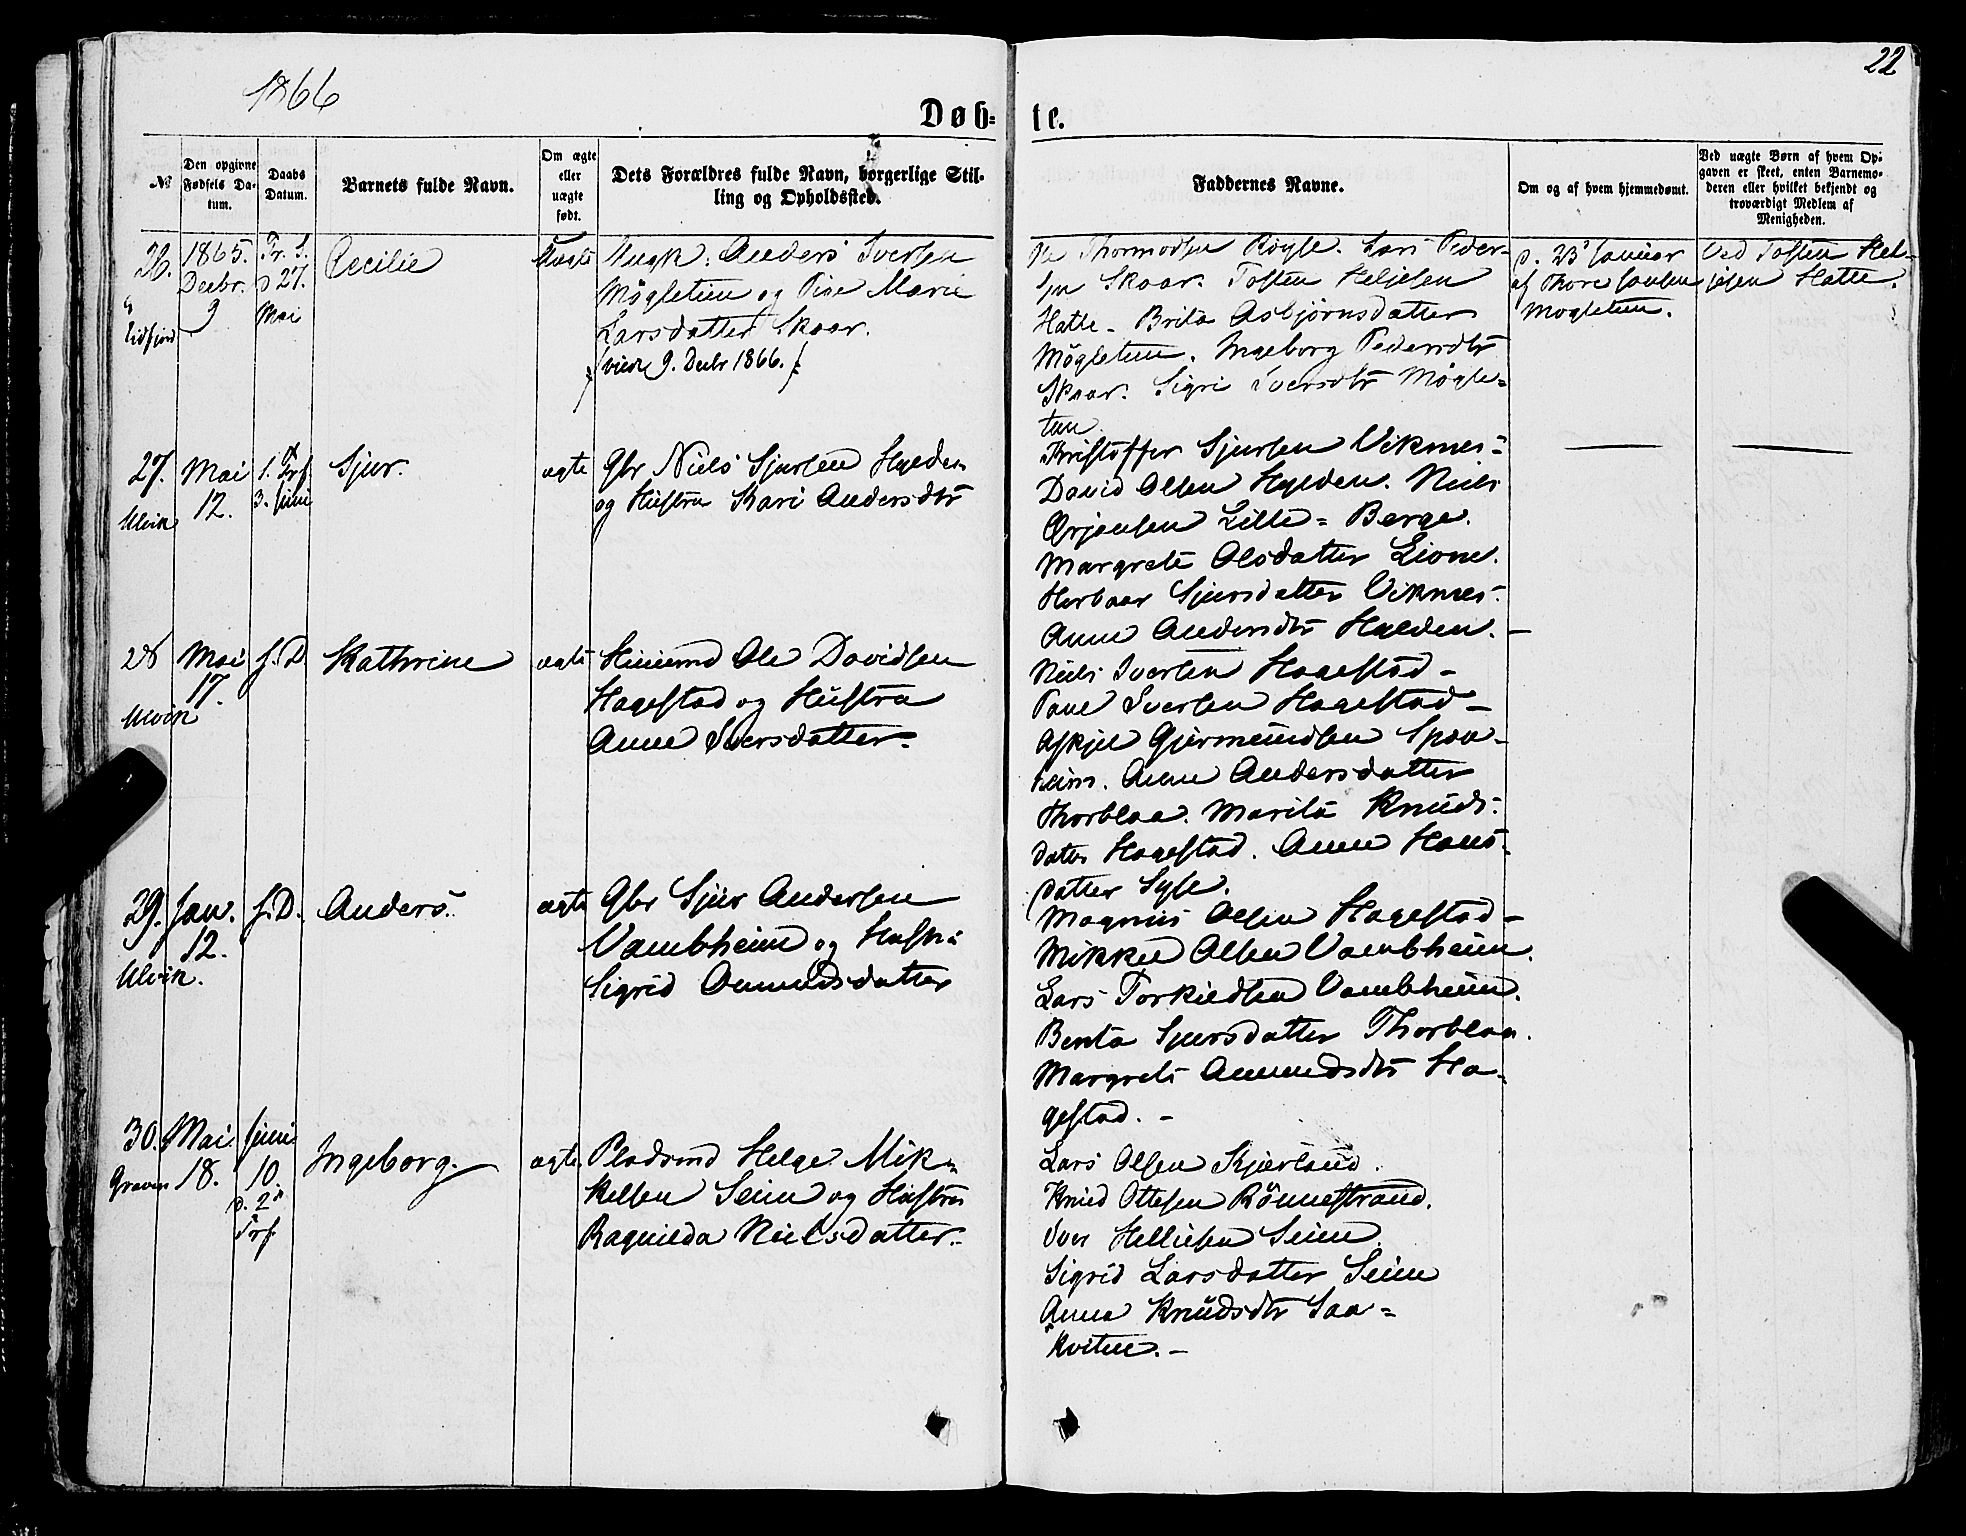 1866
22
Døb=
te.
№
Den opgivne Fødsels Da-
tum.
Daabs
Datum.
Barnets fulde Navn.
Om ægte
eller
uægte
født.
Dets Forældres fulde Navn, borgerlige Stil-
ling og Opholdssted.
Faddernes Navne.
Om og af hvem hjemmedømt.
Ved uægte Børn af hvem Op-
gaven er skeet, enten Barnemo-
deren eller hvilket bekjendt og
troværdigt Medlem af
Menigheden.
26.
Eidfjord
1865.
Decbr.
9
Tr. S.
p 27.
Mai
Cecilie
Uægte
Ungk: Anders Iversen
Mögletun og Pige Marie
Larsdatter Skaar.
(viede 9. Decbr 1866.)
Ole Thormodsen Röyse. Lars Peder-
sen Skaar. Tosten Heljesen
Hatle. Brita Asbjörnsdatter
Mögletun. Ingeborg Pedersdtr
Skaar. Sigri Iversdtr Mögle-
tun.
p. 23' Januar
af Thore Jonsen
Mogletun.
Ved Tosten Hel-
jesen Hatle.
27.
Ulvik
Mai
12.
1. Trf.
3. Juni
Sjur.
ægte
Gbr Niels Sjursen Hylden
og Hustru Kari Andersdtr
Kristoffer Sjursen Viknes-
David Olsen Hylden. Niels
Ørjansen Lille-Berge.
Margrete Olsdatter Lione.
Herbaar Sjursdatter Viknes.
Anna Andersdtr Hylden. -
28
Ulvik
Mai
17.
s. D.
Kathrine
ægte
Huusmd Ole Davidsen
Hagestad og Hustru
Anne Iversdatter.
Niels Iversen Hagestad -
Povel Iversen Hagestad -
Askjel Gjermundsen Spaan-
heim. Anne Andersdatter
Thorblaa. Marita Knuds-
datter Hagestad. Anne Hans-
datter Syse.
29.
Ulvik.
Jan.
12.
s. D.
Anders.
ægte
Gbr Sjur Andersen
Vambheim og Hustru
Sigrid Amundsdatter
Magnus Olsen Hagestad -
Mikkel Olsen Vambheim.
Lars Torkildsen Vambheim.
Benta Sjursdatter Thorblaa.
Margrete Amundsdtr Ha-
gestad. -
30.
Graven
Mai
18.
Juni
10.
p. 2n
Trf.
Ingeborg.
ægte
Pladsmd Helge Mik-
kelsen Seim og Hustru
Ragnilda Nielsdatter.
Lars Olsen Skjerland.
Knud Ottesen Rönnestrand.
Iver Helliesen Seim.
Sigrid Larsdatter Seim
Anna Knudsdtr Saa-
kvitne. -